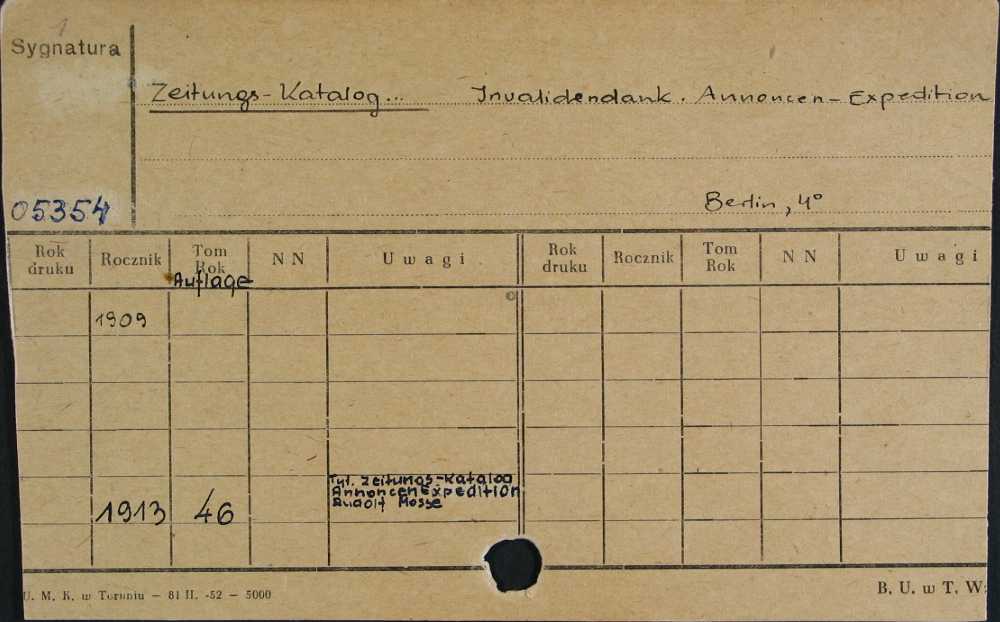 1
Sygnatura
Zeitungs-Katalog... Invalidendank. Annoncen-Expedition
05354
Berlin, 4°
Rok druku Rocznik Tom Rok NN Uwagi Rok druku Rocznik Tom Rok NN Uwagi
Auflage
1909
Tyt. Zeitungs-Katalog
Annoncen Expedition
Rudolf Mosse
1913 46
U. M. K. w Toruniu — 81 II. -52 — 5000
B. U. w T. W: